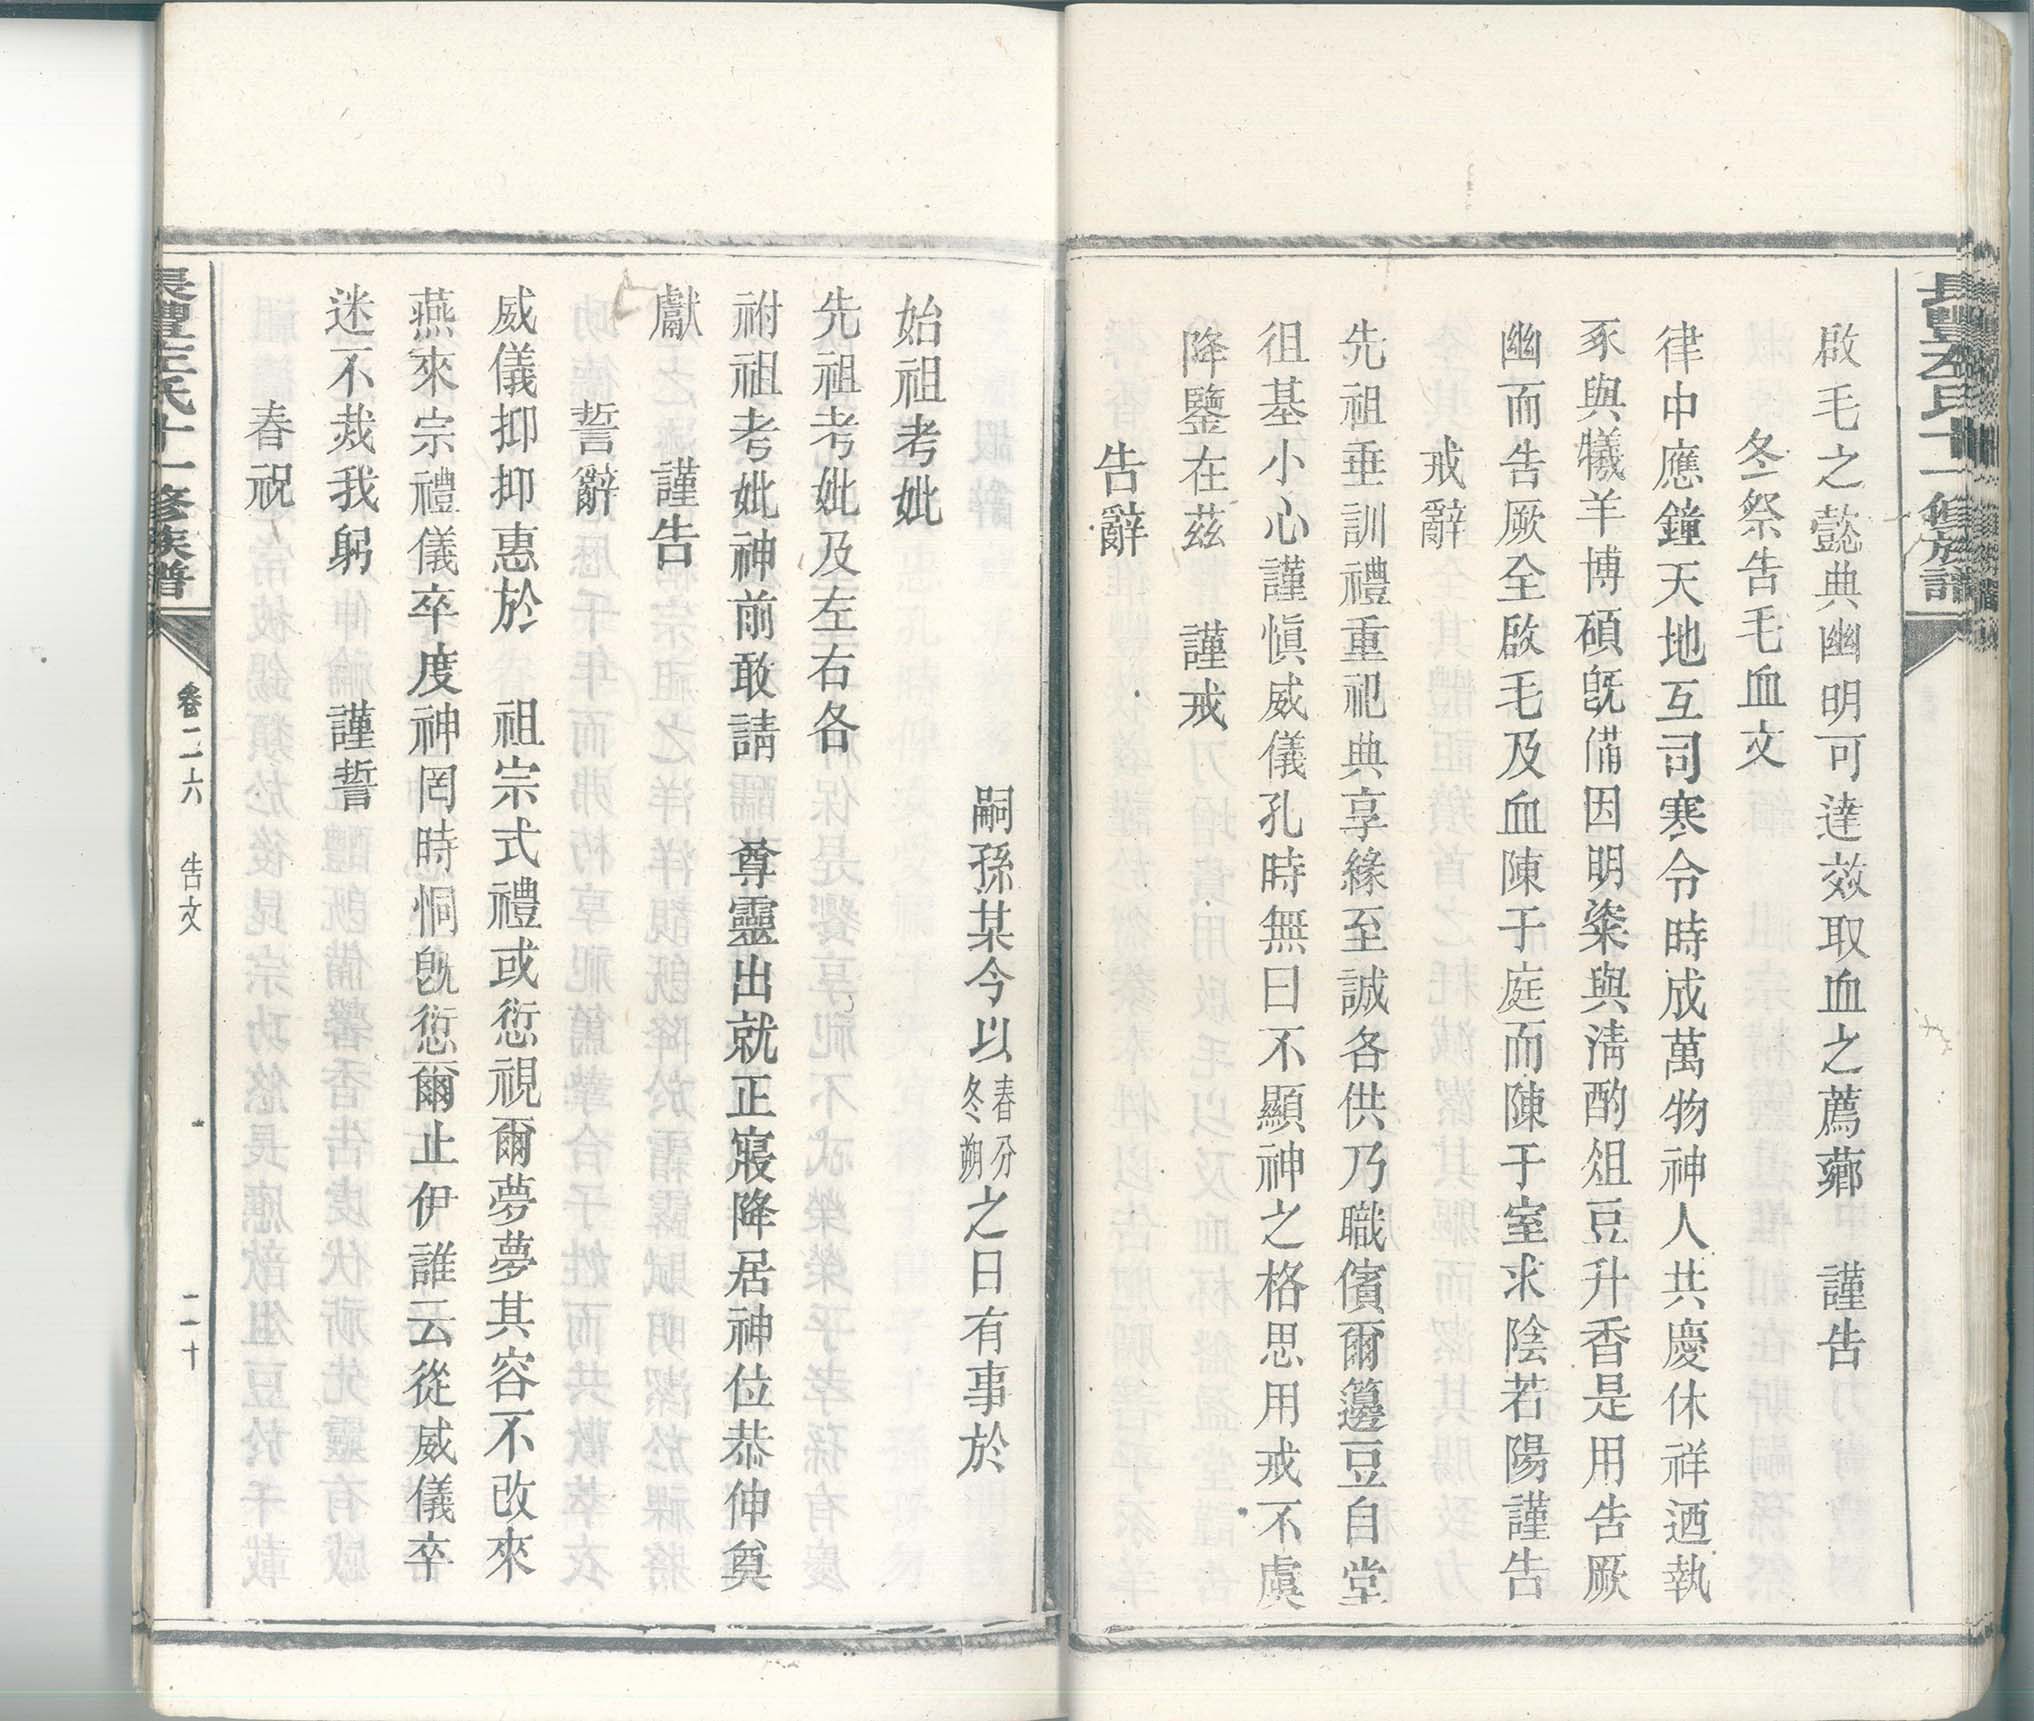 啟毛之懿典幽明可達效取血之薦薌　謹告
冬祭告毛血文
律中應鐘天地互司寒令時成萬物神人共慶休祥迺執
豕與犧羊博碩旣備因明粢與淸酌俎豆升香是用告厥
幽而告厥全啟毛及血陳于庭而陳于室求陰若陽謹告
戒辭
先祖垂訓禮重祀典享緣至誠各供乃職儐爾籩豆自堂
徂基小心謹愼威儀孔時無曰不顯神之格思用戒不虞
降鑒在茲　謹戒
告辭
嗣孫某今以春分冬朔之日有事於
始祖考妣
先祖考妣及左右各
祔祖考妣神前敢請　尊靈出就正寢降居神位恭伸奠
獻　謹告
誓辭
威儀抑抑惠於　祖宗式禮或愆視爾夢夢其容不改來
燕來宗禮儀卒度神罔時恫旣愆爾止伊誰云從威儀卒
迷不烖我躬　謹誓
春祝
氏十一修族譜
卷二六　告文
二十